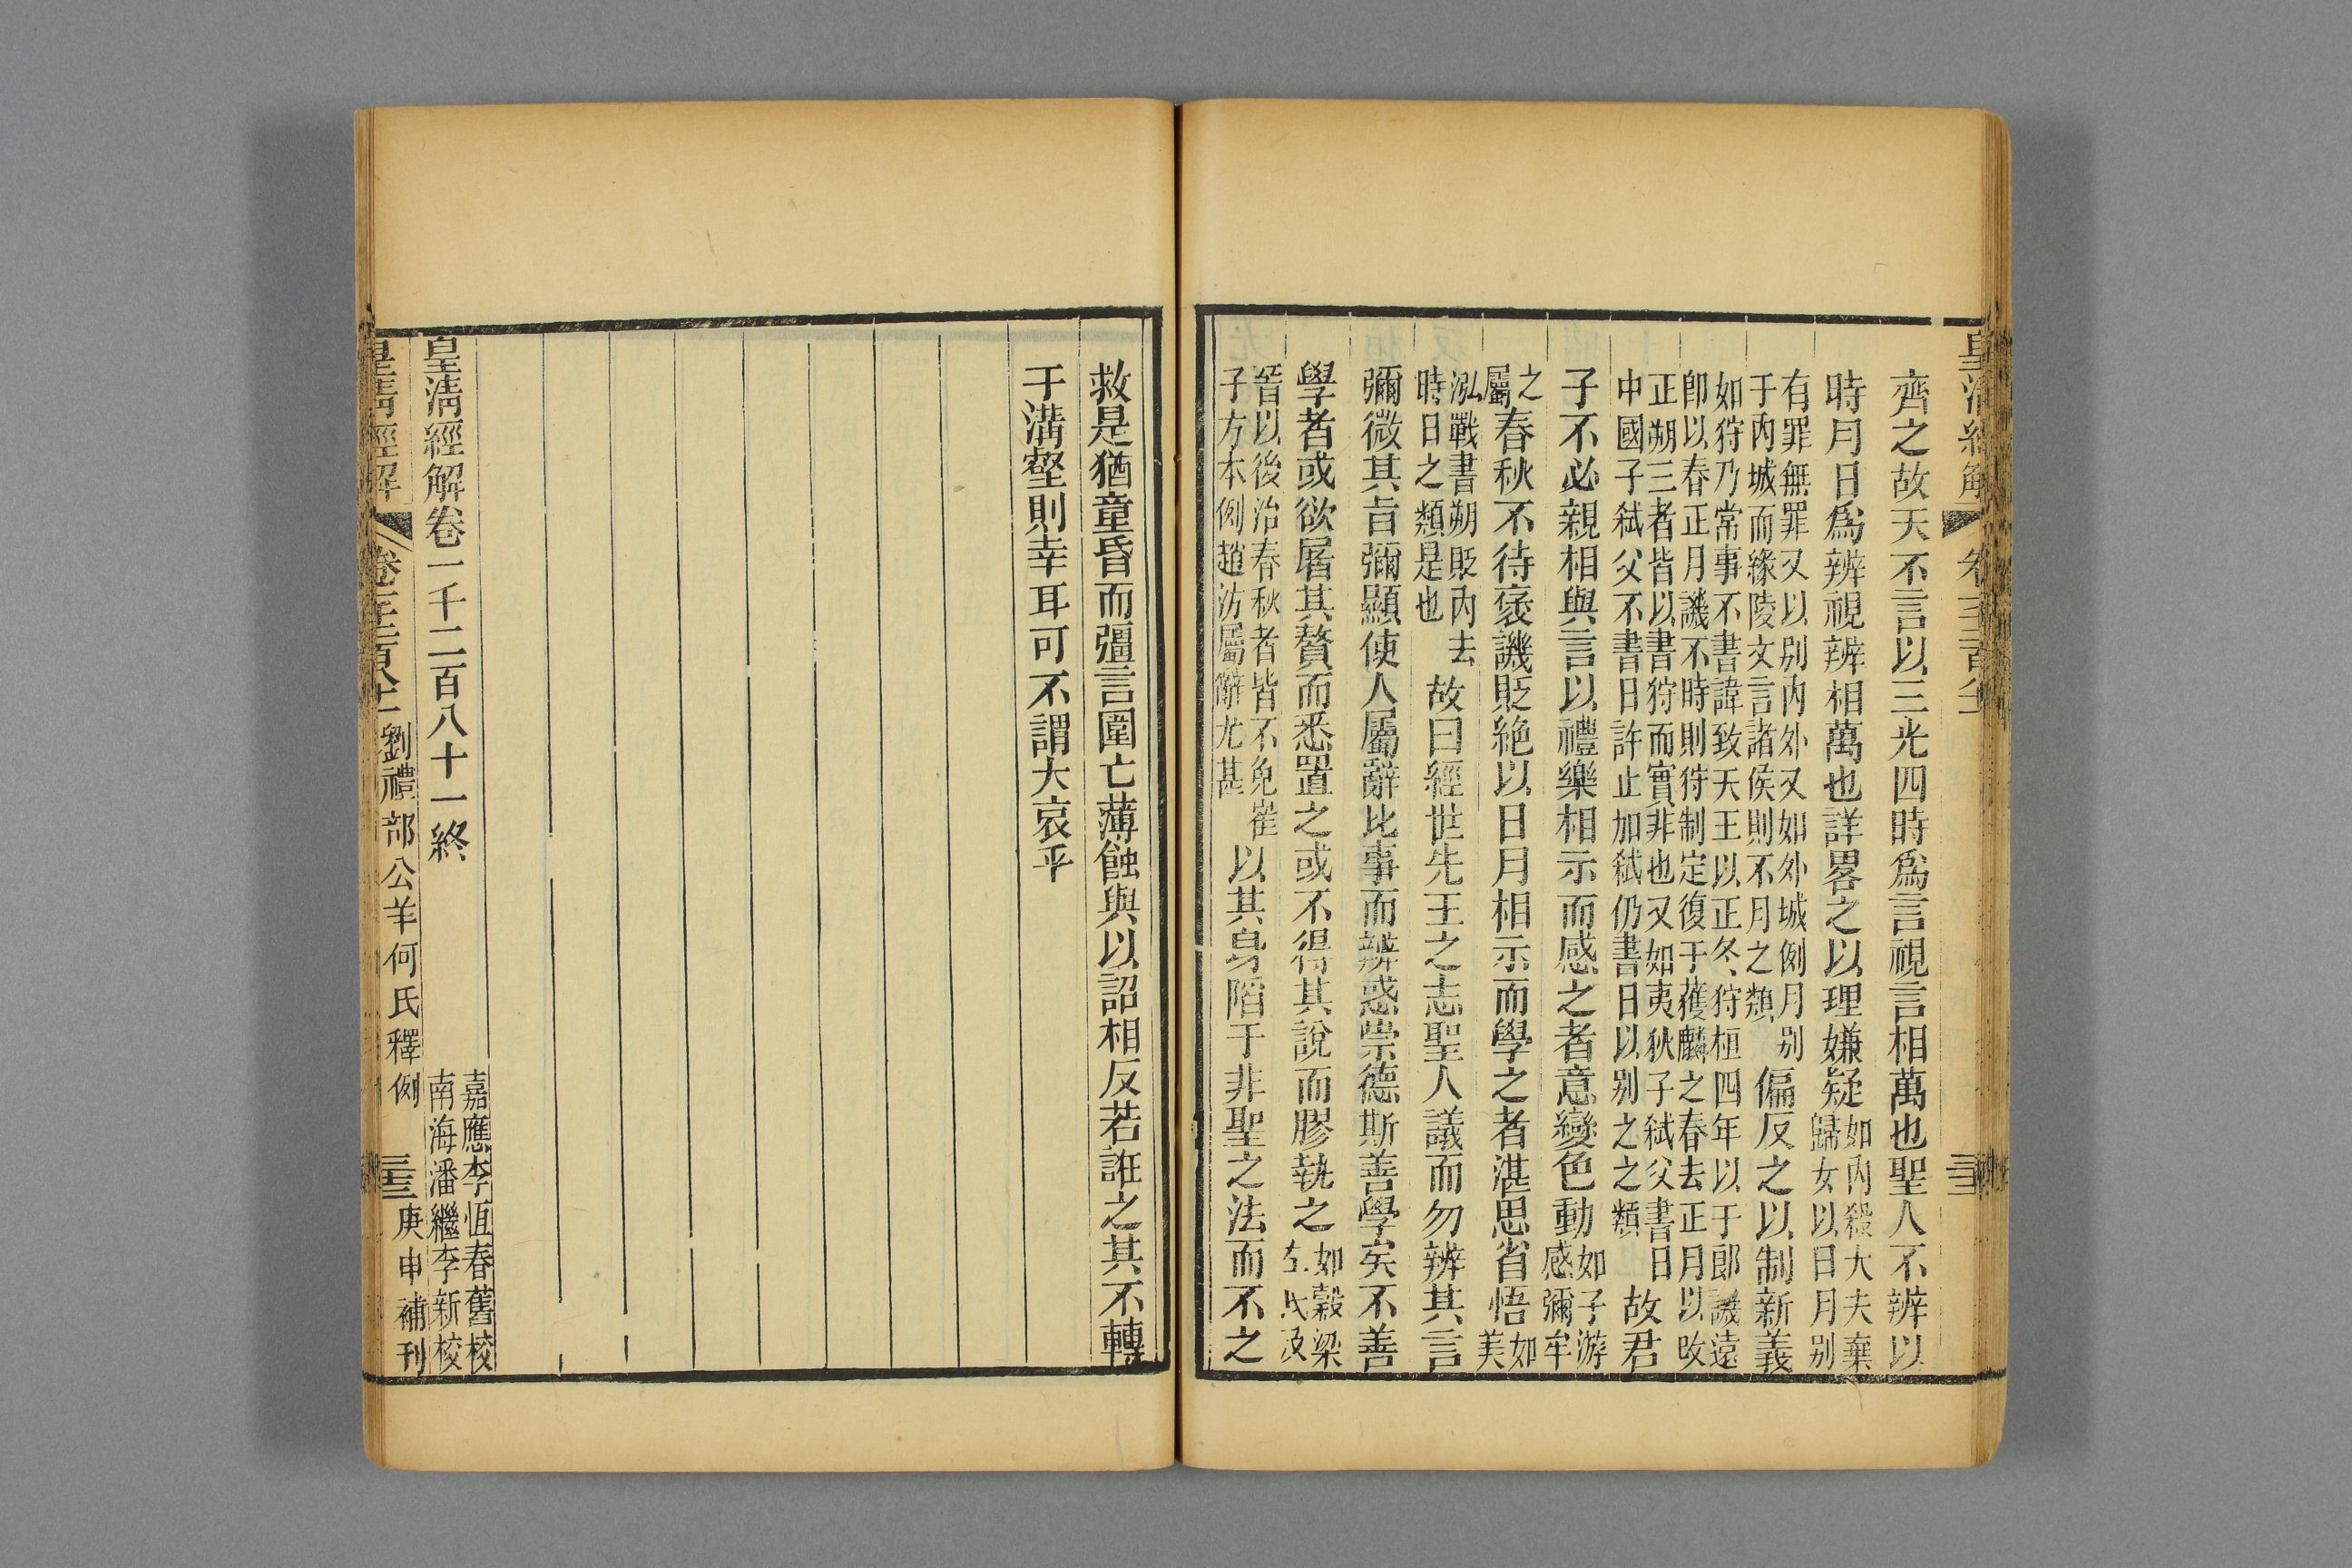 皇清經解
齊之故天不言以三光四時爲言視言相萬也聖人不辨以
時月日爲辨視辨相萬也詳畧之以理嫌疑如內殺大夫棄歸女以日月別
有罪無罪又以別內外又如外城例月別于內城而緣陵文言諸侯則不月之類偏反之以制新義
如狩乃常事不書諱致天王以正冬狩桓四年以于郎譏遠卽以春正月譏不時則狩制定復于獲麟之春去正月以改
正朔三者皆以書狩而實非也又如夷狄子弑父書日中國子弑父不書日許止加弑仍書日以別之之類故君
子不必親相與言以禮樂相示而感之者意變色動如子游感彌牟
之屬春秋不待襃譏貶絶以日月相示而學之者湛思省悟如美
泓戰書朔貶內去時日之類是也故曰經世先王之志聖人議而勿辨其言
彌微其旨彌顯使人屬辭比事而辨惑崇德斯善學矣不善
學者或欲屠其贅而悉置之或不得其說而膠執之如穀梁左氏及
晉以後治春秋者皆不免崔子方本例趙汸屬辭尤甚以其身陷于非聖之法而不之
救是猶童昏而彊言圍亡薄蝕與以詔相反若誑之其不轉
于溝壑則幸耳可不謂大哀乎
皇清經解卷一千二百八十一終
嘉應李恆春舊校
南海潘繼李新校
皇清經解
卷一千二百八十一
劉禮部公羊何氏釋例
三十三
庚申補刊